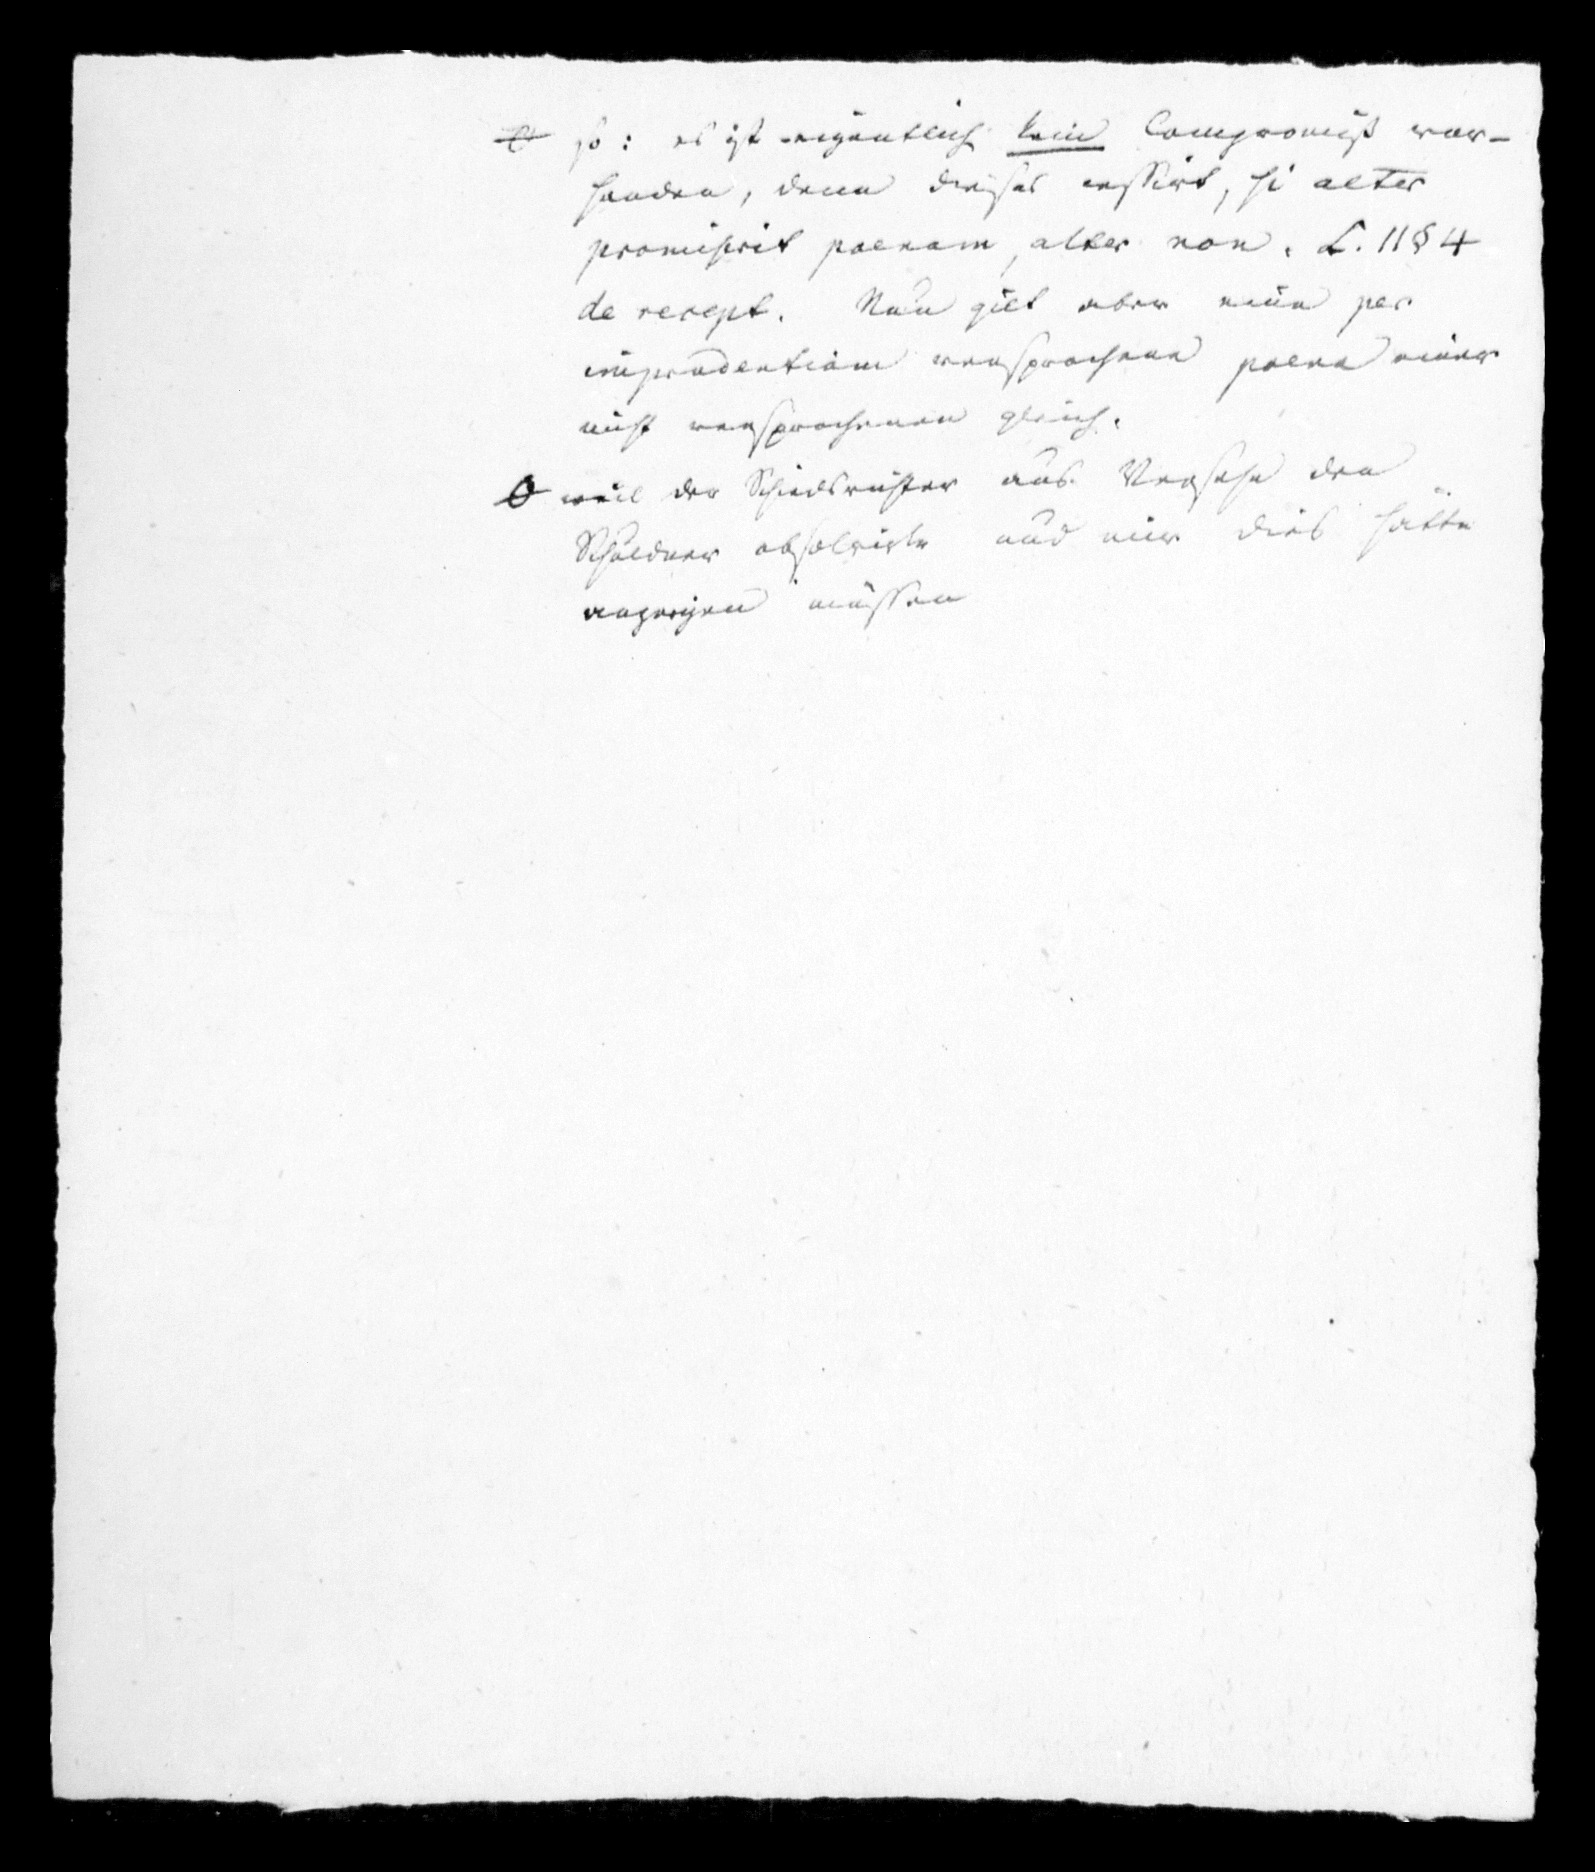 so: es ist eigentlich kein Compromiß vor-
handen, denn dieses cessirt, si alter
promiserit poenam, alter non. L. 11 § 4
de recept. Nun gilt aber eine per
imprudentiam versprochene poena einer
nicht versprochenen gleich.
weil der Schiedsrichter aus Versehn den
Schuldner absolvirte und mir dies hätte
anzeigen müssen